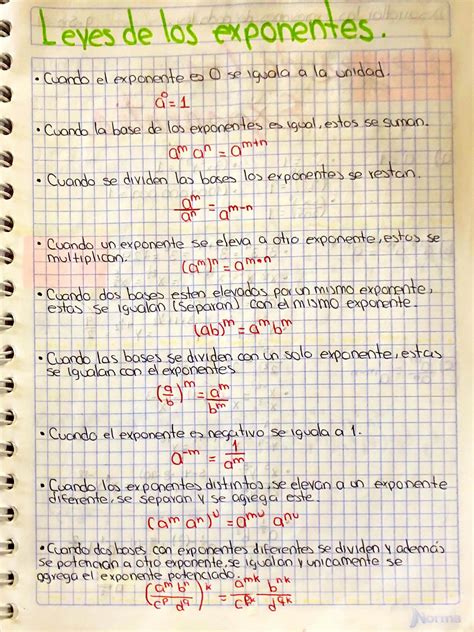 Leyes de los exponentes.
• Cuando el exponente es 0 se iguala a la unidad.
a⁰=1
• Cuando la base de los exponentes es igual, estos se suman.
a^m a^n = a^{m+n}
• Cuando se dividen las bases los exponentes se restan.
a^m/a^n = a^{m-n}
• Cuando un exponente se eleva a otro exponente, estos se
multiplican.
(a^m)^n = a^{m*n}
• Cuando dos bases esten elevados por un mismo exponente,
estas se igualan (separan) con el mismo exponente.
(ab)^m = a^m b^m
• Cuando las bases se dividen con un solo exponente, estas
se igualan con el exponentes
(a/b)^m = a^m/b^m
• Cuando el exponente es negativo se iguala a 1.
a^{-m} = 1/a^m
• Cuando los exponentes distintos, se elevan a un exponente
diferente, se separan y se agrega este.
(a^m a^n)^u = a^{mu} a^{nu}
• Cuando dos bases con exponentes diferentes se dividen y además
se potencian a otro exponente, se igualan y unicamente se
agrega el exponente potenciado.
(a^m b^n/c^p d^q)^k = a^{mk}/c^{pk} b^{nk}/d^{qk}
Norma